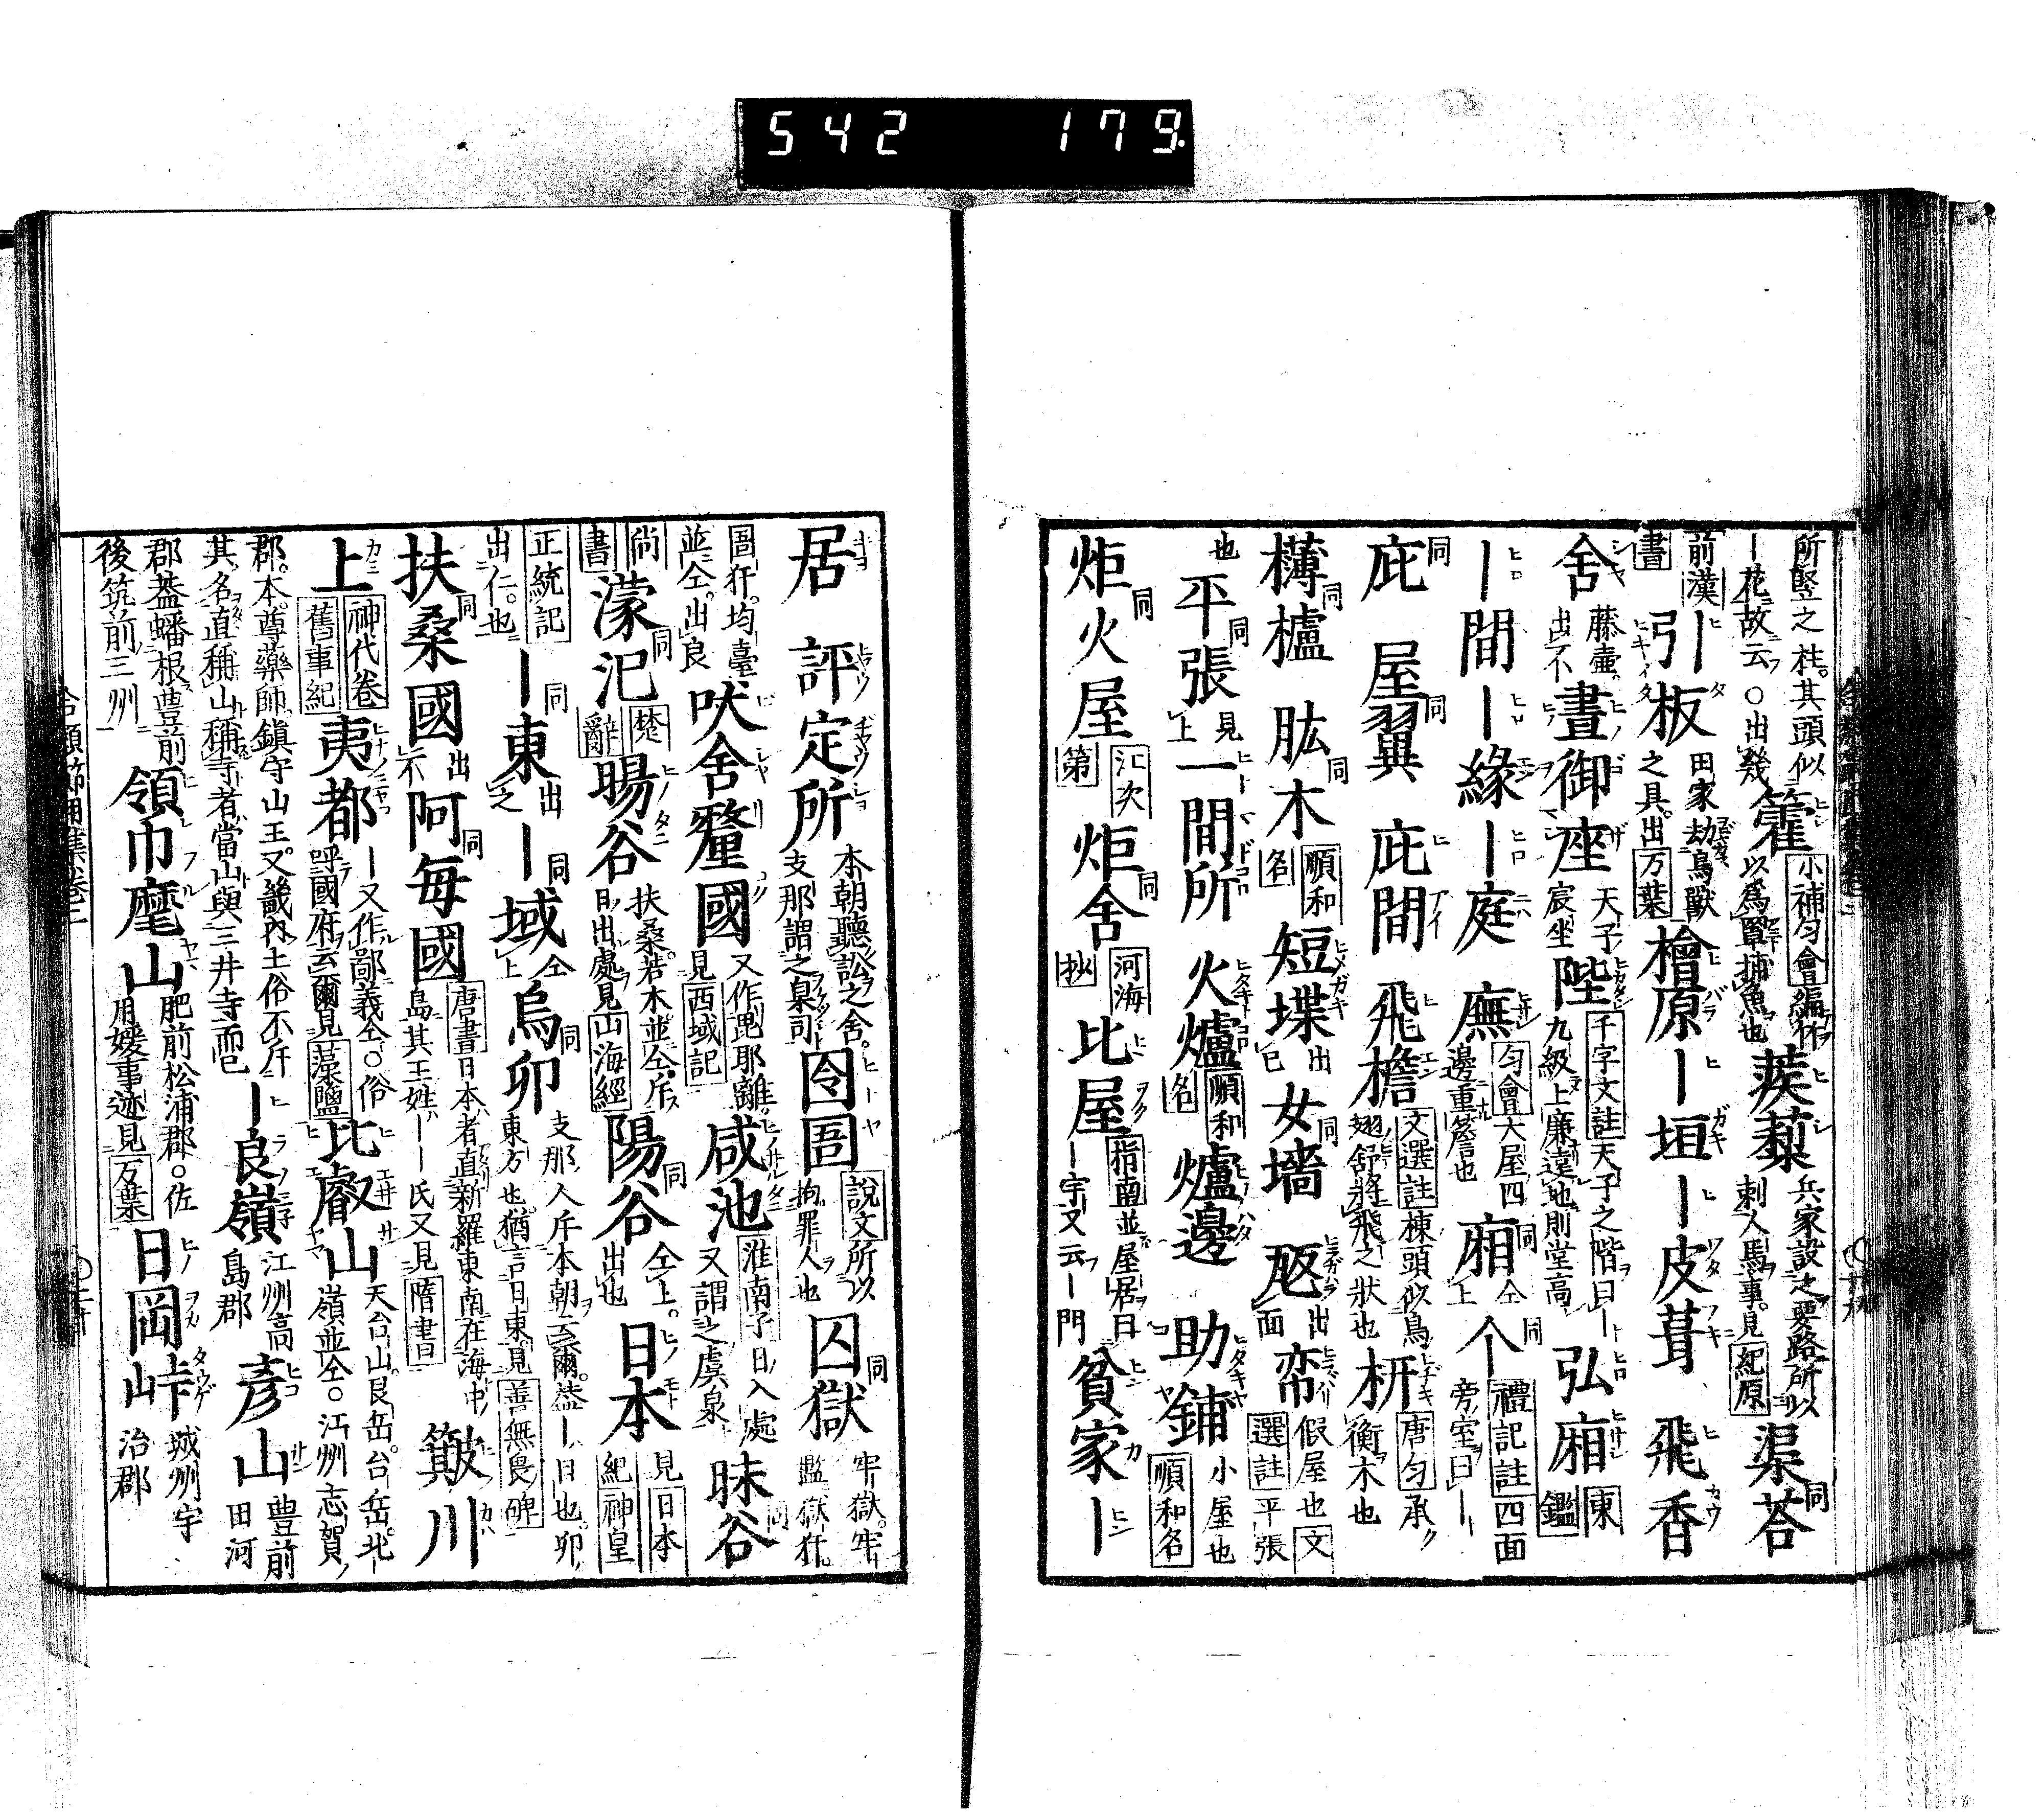 542 179
所竪之柱。其頭似
ー花故云。○出幾
籗 小補匀會編竹
以爲䍐捕魚也
蒺蔾 兵家設之要路所以
刺人馬事。見紀原
渠荅 同
前漢
書
引ー板 田家劫鳥獸
之具。出万葉
檜原 ー垣 ー皮葺 飛香
舍 藤壷。
出不
晝御座 天子
宸坐
陛 千字文註天子之階曰ー
九級上廉遠地則堂高
弘廂 東
鑑
ー間 ー緣 ー庭 廡 匀會大屋四
邊重簷也
廂 同 仝
上
个 同 禮記註四面
旁室曰ー
庇 同 屋翼 同 庇間 飛檐 文選註棟頭似鳥
翅舒將飛之狀也
枅 唐匀承
衡木也
欂櫨 同 肱木 同 順和
名
短堞 出
已
女墻 同
出
面
帟 假屋也文
選註平張
也
平張 同 見
上
一間所 火爐 順和
名
爐邊 助鋪 小屋也
順和名
炬火屋 同 江次
第
炬舍 同 河海
抄
比屋 指南並屋居曰
ー宇又云ー門
貧家 ー
居 評定所 本朝聽訟之舍。
支那謂之臬司
囹圄 說文所以
拘罪人也
囚獄 同 牢獄。牢
監獄犴
圄犴。均臺
並仝。出良
吠舍釐國 又作毘耶離。
見西域記
咸池 淮南子日入處
又謂之虞泉
昧谷 同
尙
書
濛汜 同 楚
辭
暘谷 扶桑。若木並仝。斥
日出處見山海經
陽谷 同 仝上。
出也
日本 見日本
紀神皇
正統記
出仁。也
ー東 同 出
之
ー域 同 仝
上
烏卯 同 支那人斥本朝云爾。葢ー日也。卯
東方也。猶言日東。見善無畏碑
扶桑國 同 出
不
阿每國 同 唐書日本者直新羅東南在海中
島其王姓ーー氏又見隋書
簸川
上 神代卷
舊事紀
夷都 ー又作鄙義仝。○俗
呼國府云爾見藻鹽
比叡山 天台山。艮岳。台岳。北
嶺並仝。○江州志賀
郡。本尊藥師鎭守山王。又畿內土俗不斥
其名直稱山稱寺者當山與三井寺而已
ー良嶺 江州高
島郡
彥山 豊前
田河
郡葢蟠根豊前
後筑前三州
領巾麾山 肥前松浦郡。○佐
用媛事迹見万葉
日岡峠 城州宇
治郡